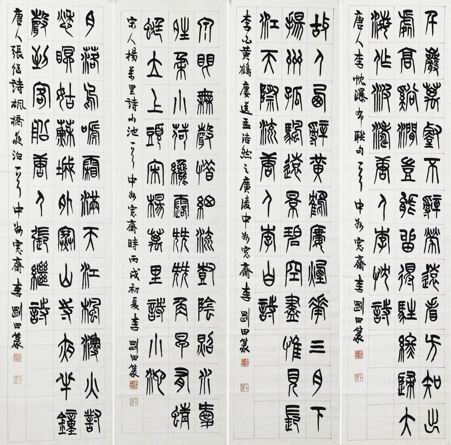 千巖萬壑不辭勞遠看方知出
處高溪澗豈能留得住終歸大
海作波濤唐人李忱詩
唐人李忱瀑布聯句一首中州寬齋建國田篆
故人西辭黃鶴樓煙花三月下
揚州孤帆遠影碧空盡惟見長
江天際流唐人李白詩
李白黃鶴樓送孟浩然之廣陵中州寬齋建國田篆
泉眼無聲惜細流樹陰照水愛
晴柔小荷纔露尖尖角早有蜻
蜓立上頭宋楊萬里詩小池
宋人楊萬里詩小池一首中州寬齋時丙戌初夏建國田篆
月落烏啼霜滿天江楓漁火對
愁眠姑蘇城外寒山寺夜半鐘
聲到客船唐人張繼詩
唐人張繼詩楓橋夜泊一首中州寬齋建國田篆